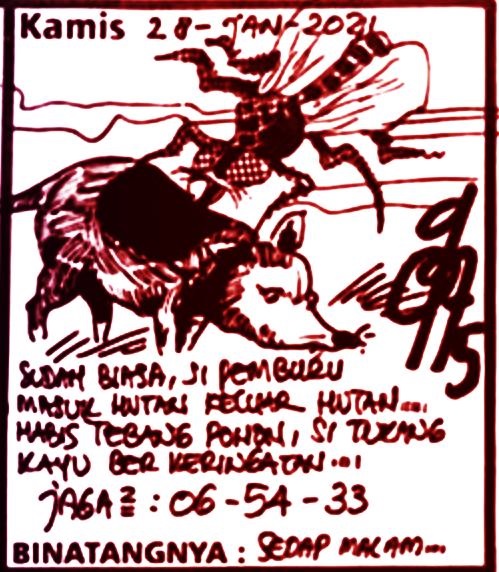 Kamis 28-JAN-2021
SUDAH BIASA, SI PEMBURU
MASUK HUTAN KELUAR HUTAN....
HABIS TEBANG POHON, SI TUKANG
KAYU BER KERINGATAN...
JAGA2 : 06-54-33
BINATANGNYA : SEDAP MALAM...